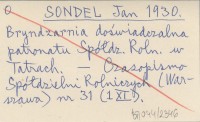 SONDEL Jan 1930.
Bryndzarnia doświadczalna
patronatu Spółdz. Roln. w
Tatrach. — Czasopismo
Spółdzielni Rolniczych (War-
szawa) nr 31 (1 XI).